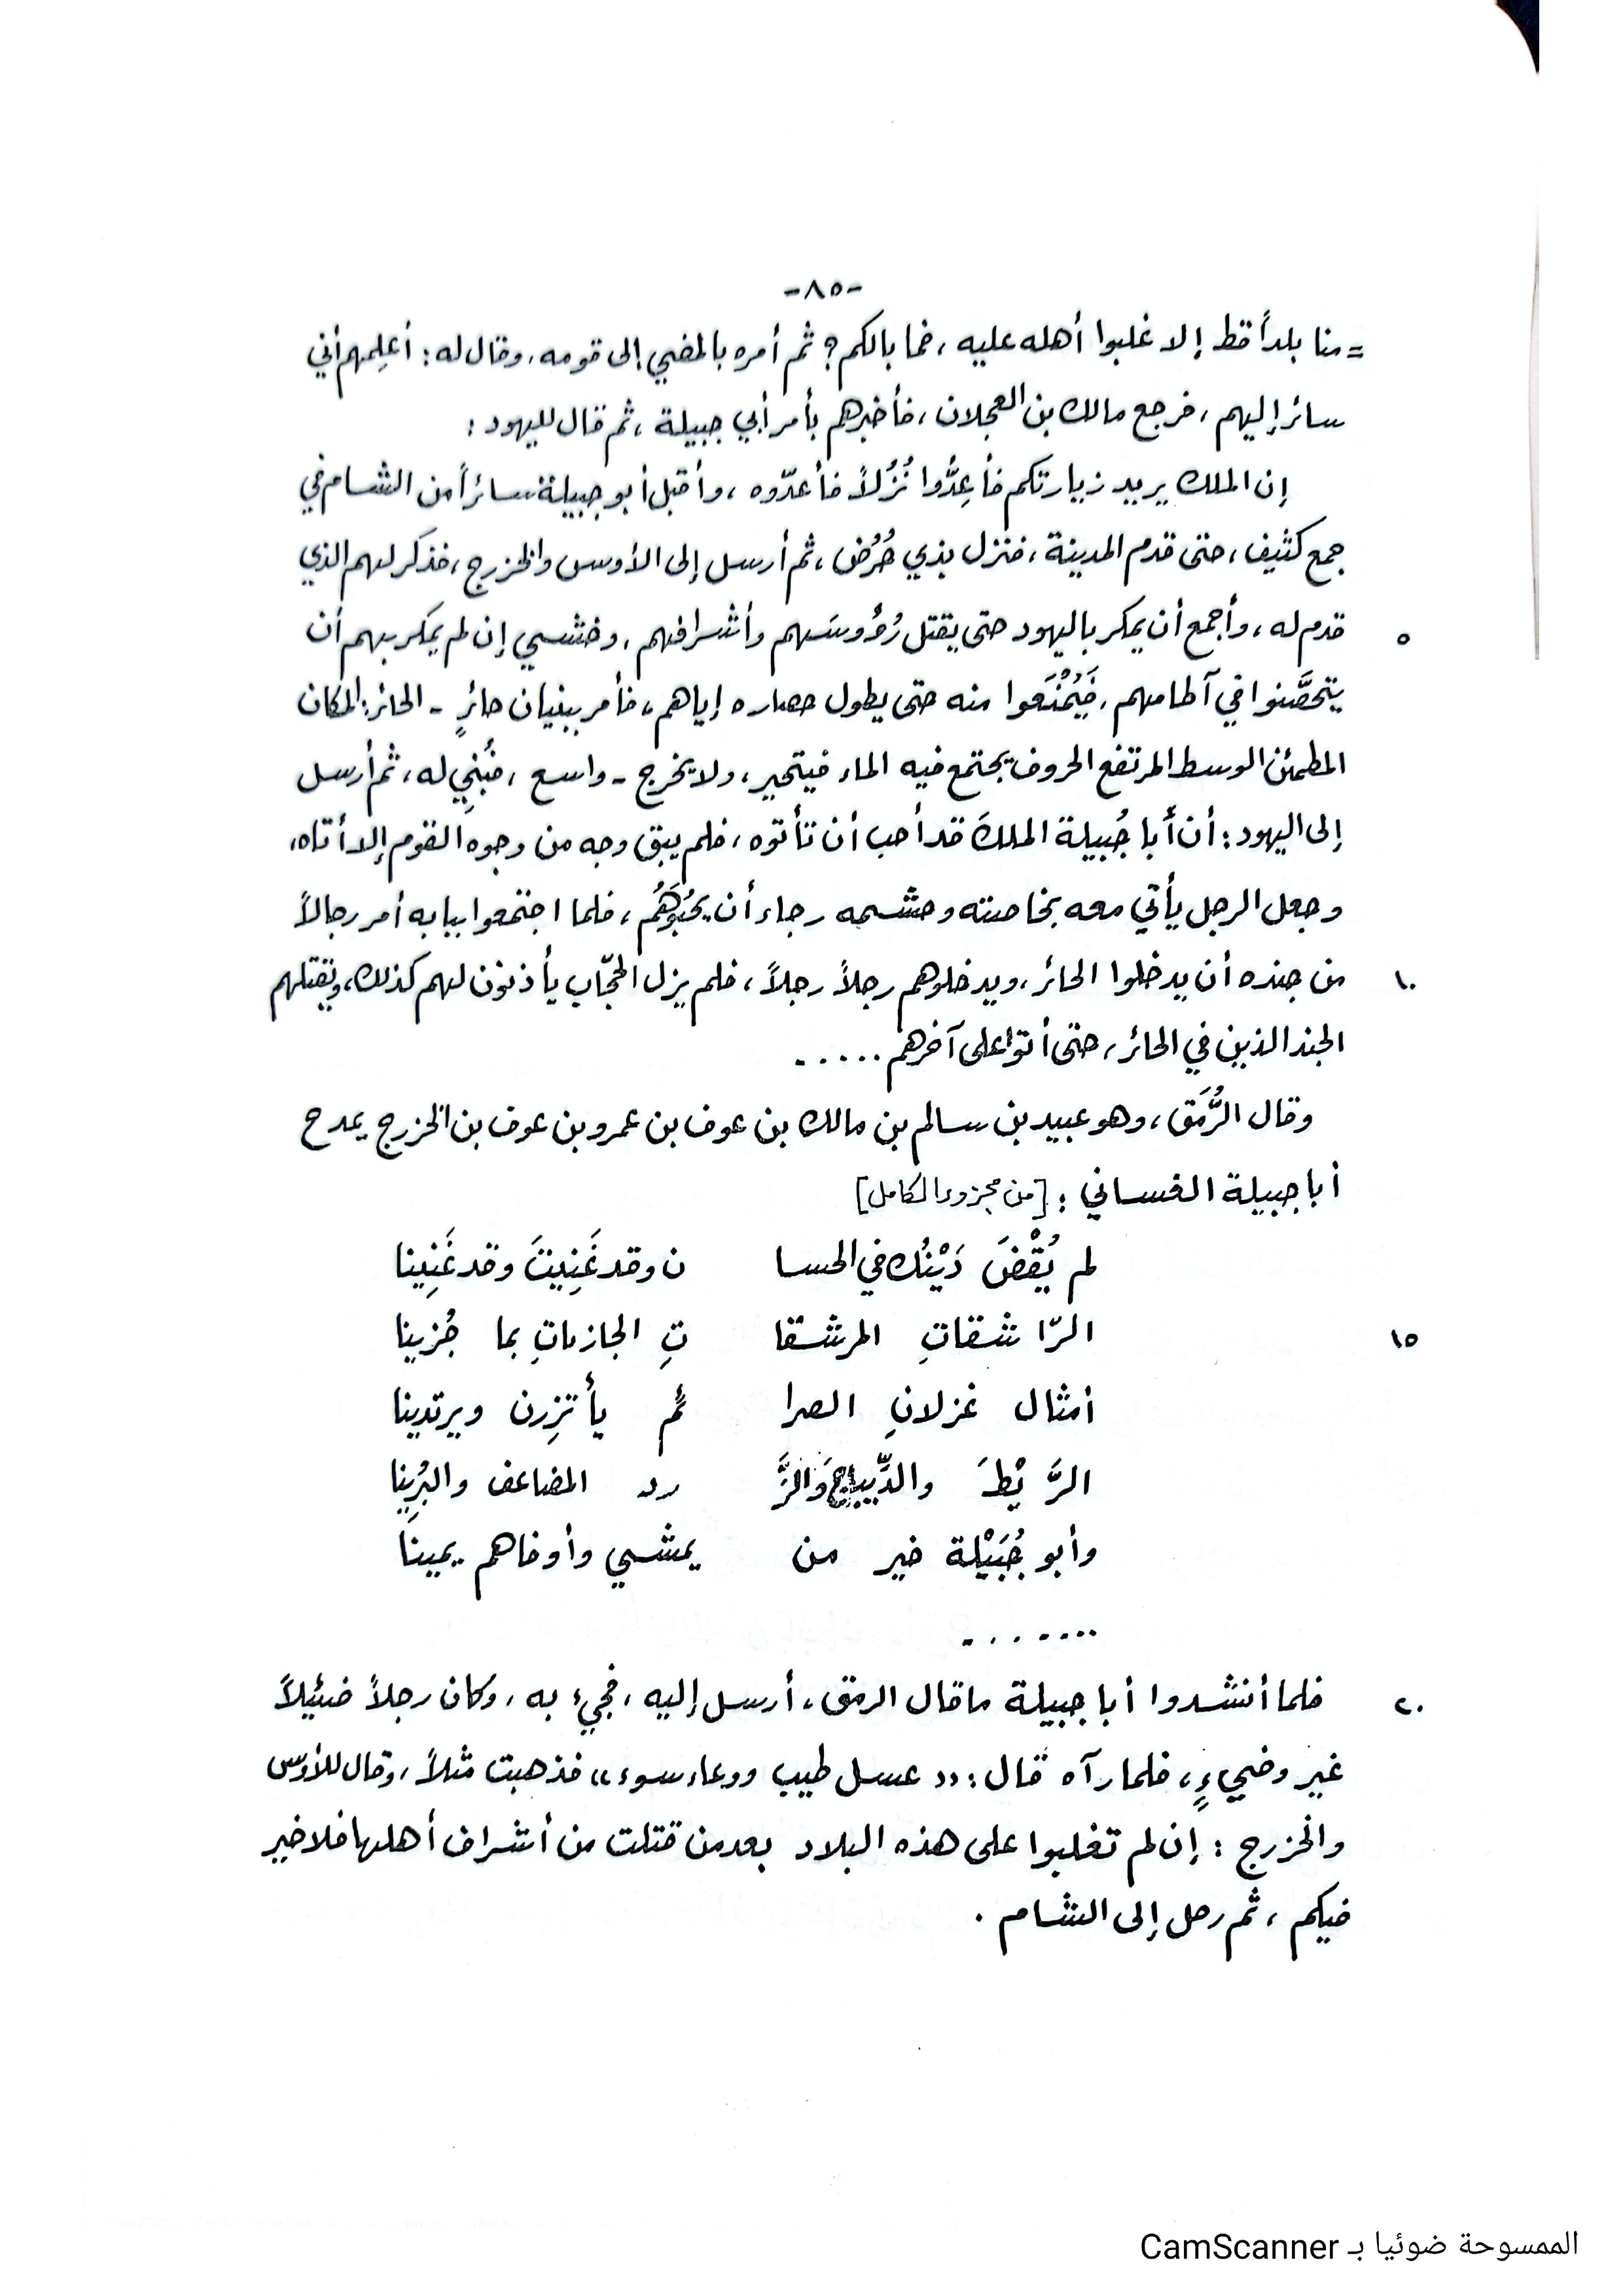 -٨٥-
= منا بلداً قط إلا غلبوا أهله عليه، فما بالكم؟ ثم أمره بالمضي إلى قومه، وقال له: أعلِمهم أني
سائر إليهم، فرجع مالك بن العجلان، فأخبرهم بأمر أبي جبيلة، ثم قال لليهود:
إن الملك يريد زيارتكم فأعِدُّوا نُزُلاً فأعدّوه، وأقبل أبو جبيلة سائراً من الشام في
جمع كثيف، حتى قدم المدينة، فنزل بذي حُرُض، ثم أرسل إلى الأوس والخزرج، فذكر لهم الذي
٥ قدم له، وأجمع أن يمكر باليهود حتى يقتل رُؤُوسَهم وأشرافهم، وخشي إن لم يمكر بهم أن
يتحصَّنوا في آطامهم، فَيُمْنَعوا منه حتى يطول حصاره إياهم، فأمر ببنيان حائرٍ - الحائر: المكان
المطمئن الوسط المرتفع الحروف يجتمع فيه الماء فيتحير، ولا يخرج - واسع، فبُنِي له، ثم أرسل
إلى اليهود: أن أبا جُبيلة الملكَ قد أحب أن تأتوه، فلم يبق وجه من وجوه القوم إلا أتاه،
وجعل الرجل يأتي معه بخاصته وحشمه رجاء أن يحبُوَهُم، فلما اجتمعوا ببابه أمر رجالاً
١٠ من جنده أن يدخلوا الحائر، ويدخلوهم رجلاً رجلاً، فلم يزل الحجّاب يأذنون لهم كذلك، ويقتلهم
الجند الذين في الحائر، حتى أتوا على آخرهم .....
وقال الرَّمَق، وهو عبيد بن سالم بن مالك بن عوف بن عمرو بن عوف بن الخزرج يمدح
أبا جبيلة الغساني: [من مجزوء الكامل]
لم يُقْضَ دَيْنُك في الحسا ن وقد غَنِيتَ وقد غَنِينا
١٥ الرّاشقاتِ المرشقا تِ الجازياتِ بما جُزينا
أمثال غزلانِ الصرا ئم يأتزِرن ويرتدينا
الرَّيْطَ والدِّيباجَ والزَّ رد المضاعف والبُرِينا
وأبو جُبَيْلة خير من يمشي وأوفاهم يمينَا
.......
٢٠ فلما أنشدوا أبا جبيلة ما قال الرمق، أرسل إليه، فجيء به، وكان رجلاً ضئيلاً
غير وضيءٍ، فلما رآه قال: «عسل طيب ووعاء سوء» فذهبت مثلاً، وقال للأوس
والخزرج: إن لم تغلبوا على هذه البلاد بعد من قتلت من أشراف أهلها فلا خير
فيكم، ثم رحل إلى الشام.
الممسوحة ضوئيا بـ CamScanner